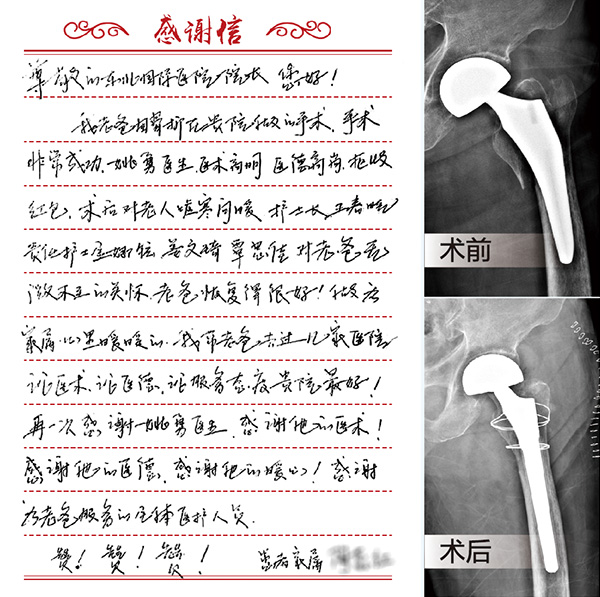 感谢信
尊敬的东北国际医院院长 您好！
我老爸相骨折在贵院做的手术，手术
非常成功，姚勇医生医术高明 医德高尚，拒收
红包，术后对老人嘘寒问暖 护士长王春晓
责任护士 姜文琦 覃思佳 对老爸无
微不至的关怀，老爸恢复得很好！做为
家属心里暖暖的，我带老爸去过几家医院
论医术，论医德，论服务态度贵院最好！
再一次感谢姚勇医生，感谢他的医术！
感谢他的医德，感谢他的暖心！感谢
为老爸服务的全体医护人员，
赞！赞！赞！ 患者家属
术前
术后